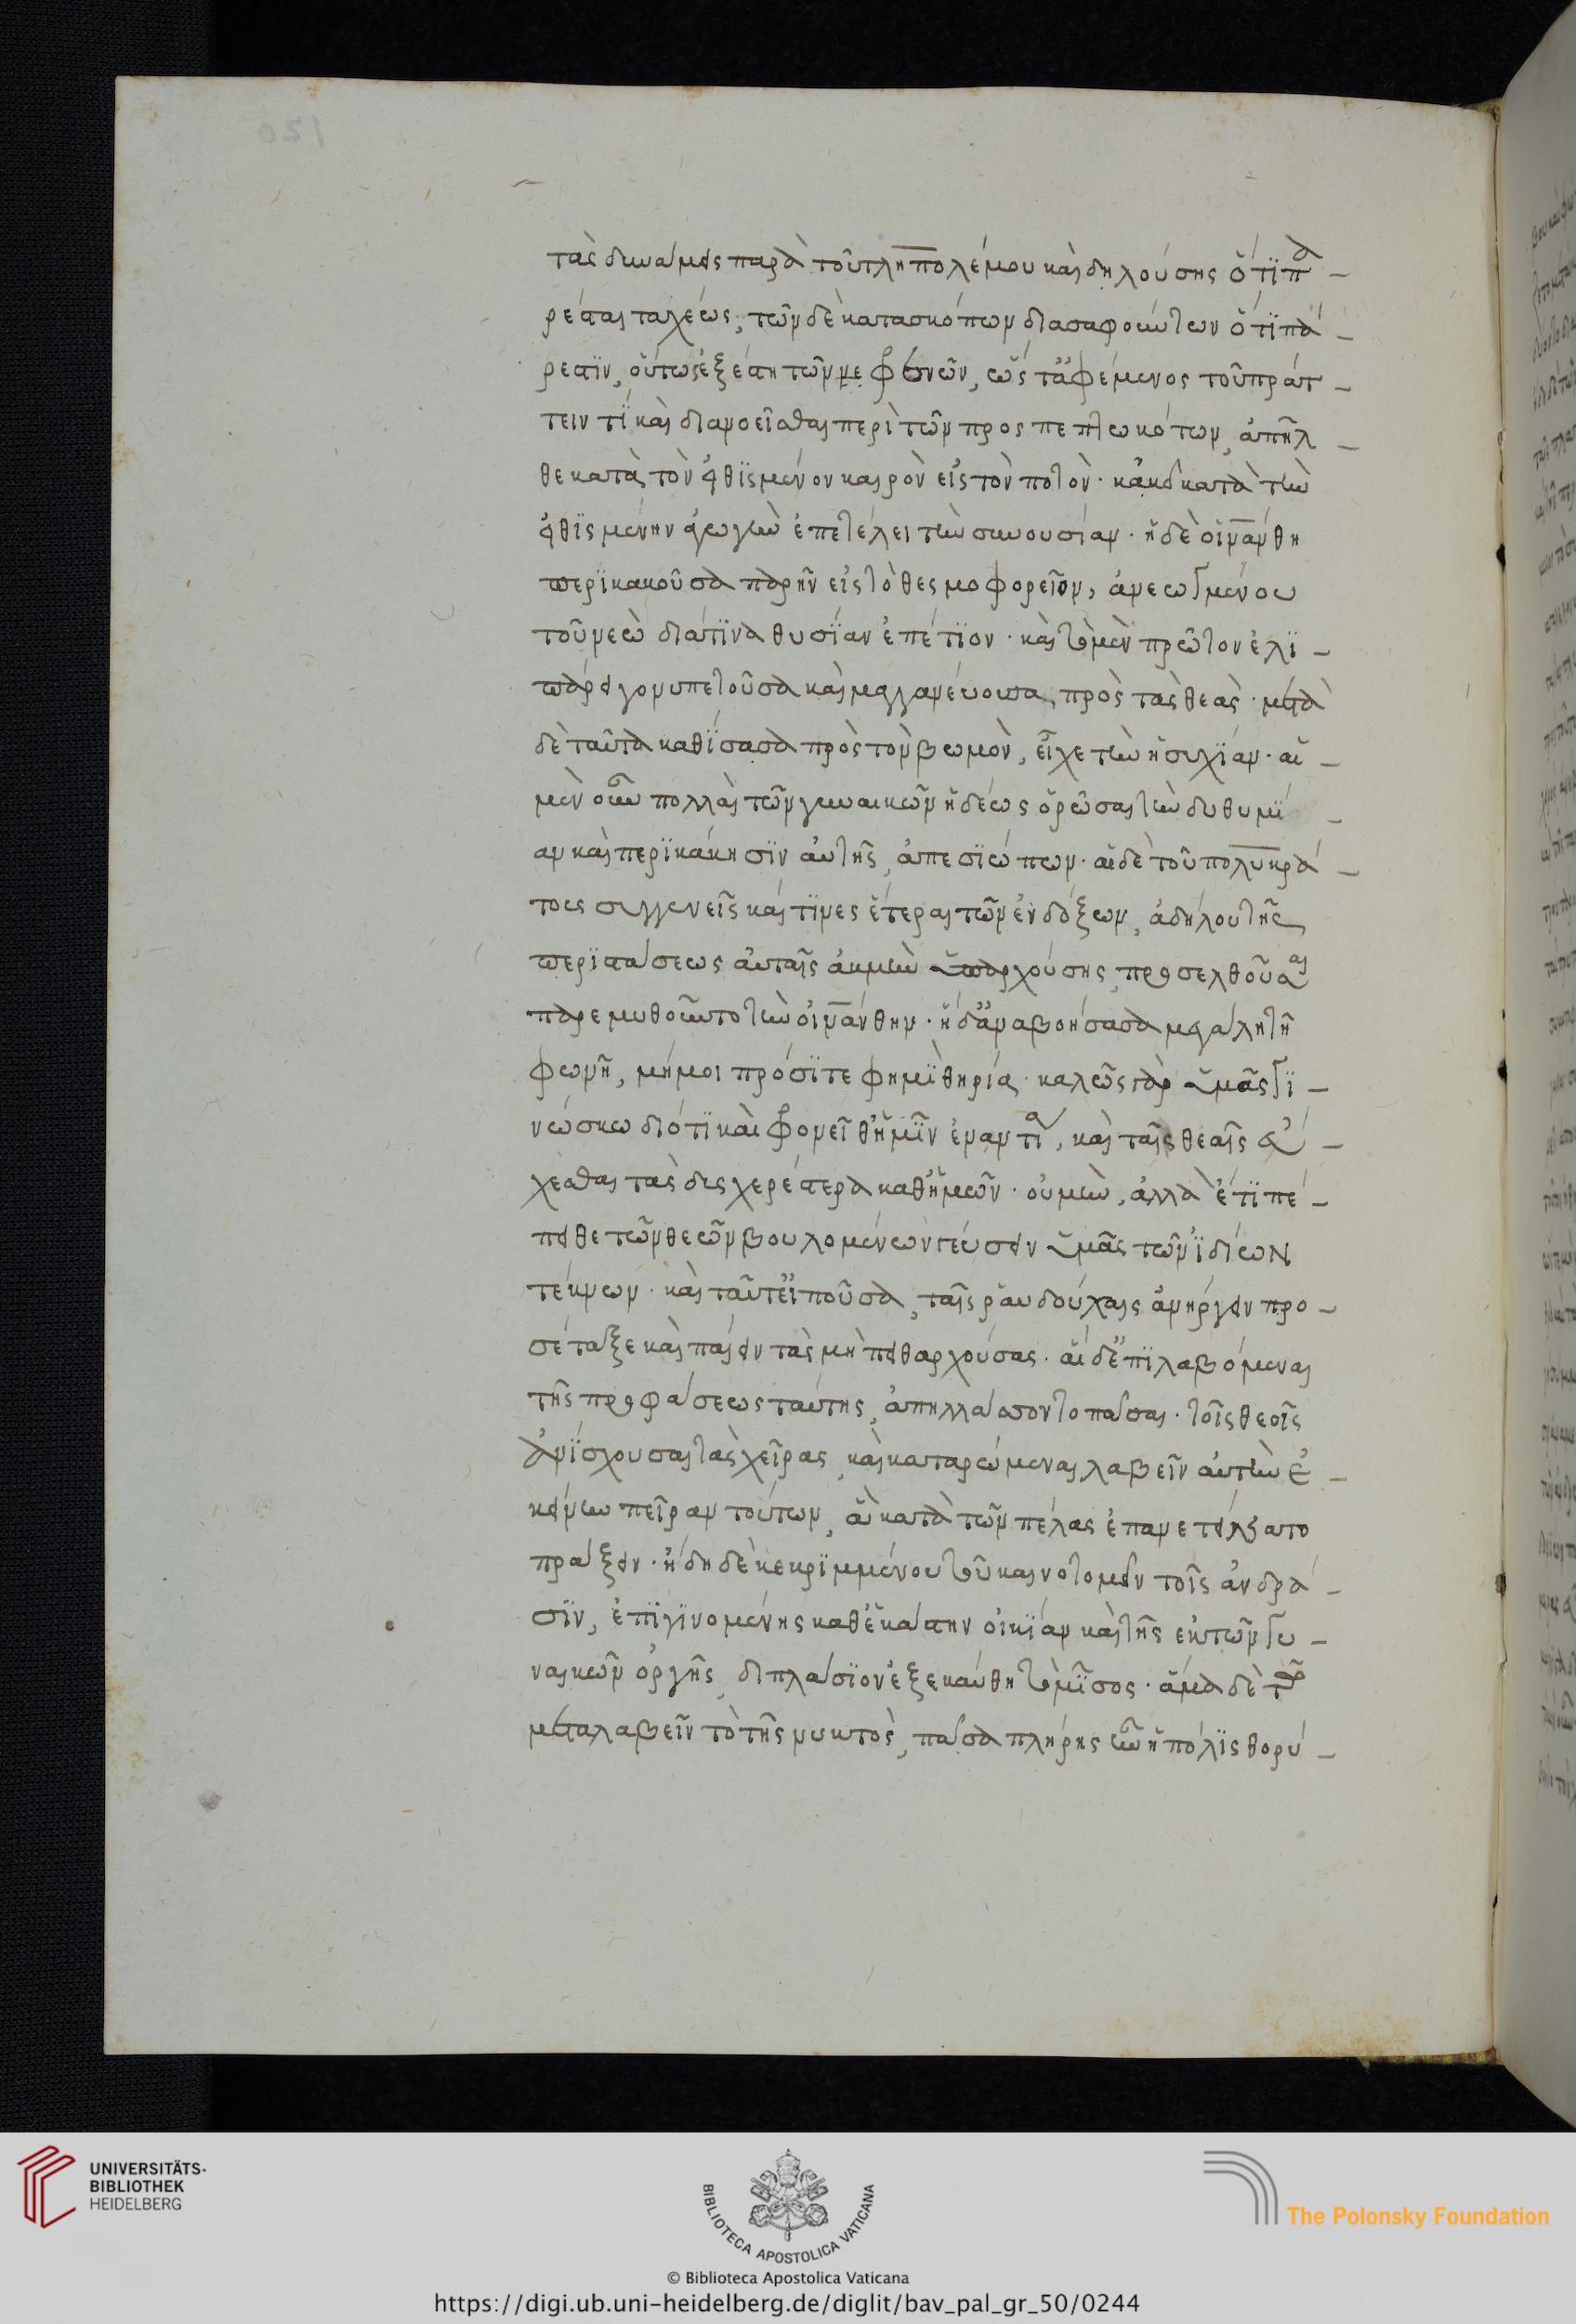 τὰς δυνάμεις παρὰ τοῦ τληπολέμου καὶ δηλούσης ὅτι πα-
ρέσται ταχέως, τῶν δὲ κατασκόπων διασαφούντων ὅτι πά-
ρεστιν, οὕτως ἐξέστη τῶν φρενῶν, ὥστ' ἀφέμενος τοῦ πράτ-
τειν τι καὶ διανοεῖσθαι περὶ τῶν προσπεπτωκότων, ἀπῆλ-
θε κατὰ τὸν εἰθισμένον καιρὸν εἰς τὸν πότον· κἀκεῖ κατὰ τὴν
εἰθισμένην ἀγωγὴν ἐπετέλει τὴν συνουσίαν· ἡ δὲ οἰνάνθη
περικακοῦσα παρῆν εἰς τὸ θεσμοφορεῖον, ἀνεωγμένου
τοῦ νεὼ διά τινα θυσίαν ἐπέτιον· καὶ τὸ μὲν πρῶτον ἐλι-
πάρει γονυπετοῦσα καὶ μαγγανεύουσα πρὸς τὰς θεάς· μετὰ
δὲ ταῦτα καθίσασα πρὸς τὸν βωμὸν, εἶχε τὴν ἡσυχίαν· αἱ
μὲν οὖν πολλαὶ τῶν γυναικῶν ἡδέως ὁρῶσαι τὴν δυσθυμί-
αν καὶ περικάκησιν αὐτῆς, ἀπεσιώπων· αἱ δὲ τοῦ πολυκρά-
τους συγγενεῖς καί τινες ἕτεραι τῶν ἐνδόξων, ἀδήλου τῆς
περιστάσεως αὐταῖς ἀκμὴν ὑπαρχούσης, προσελθοῦσαι
παρεμυθοῦντο τὴν οἰνάνθην· ἡ δ' ἀναβοήσασα μεγάλῃ τῇ
φωνῇ, μή μοι πρόσιτε φημὶ θηρία· καλῶς γὰρ ὑμᾶς γι-
νώσκω διότι καὶ φρονεῖθ' ἡμῖν ἐναντία, καὶ ταῖς θεαῖς εὔ-
χεσθαι τὰς δυσχερέστερα καθ' ἡμῶν· οὐ μὴν, ἀλλὰ ἔτι πέ-
πειθε τῶν θεῶν βουλομένων γεύσειν ὑμᾶς τῶν ἰδίων
τέκνων· καὶ ταῦτ' εἰποῦσα, ταῖς ῥαυδούχαις ἀνείργειν προ-
σέταξε καὶ παίειν τὰς μὴ πειθαρχούσας· αἱ δ' ἐπιλαβόμεναι
τῆς προφάσεως ταύτης, ἀπηλλάσσοντο πᾶσαι· τοῖς θεοῖς
ἀνίσχουσαι τὰς χεῖρας, καὶ καταρώμεναι λαβεῖν αὐτὴν ἐ-
κείνην πεῖραν τούτων, ἃ κατὰ τῶν πέλας ἐπανετείνατο
πράξειν· ἤδη δὲ κεκριμμένου τοῦ καινοτομεῖν τοῖς ἀνδρά-
σιν, ἐπιγινομένης καθ' ἑκάστην οἰκίαν καὶ τῆς ἐκ τῶν γυ-
ναικῶν ὀργῆς, διπλάσιον ἐξεκαύθη τὸ μῖσος· ἅμα δὲ τῷ
μεταλαβεῖν τὸ τῆς νυκτὸς, πᾶσα πλήρης ἦν ἡ πόλις θορύ-
UNIVERSITÄTS-
BIBLIOTHEK
HEIDELBERG
BIBLIOTECA APOSTOLICA VATICANA
The Polonsky Foundation
© Biblioteca Apostolica Vaticana
https://digi.ub.uni-heidelberg.de/diglit/bav_pal_gr_50/0244